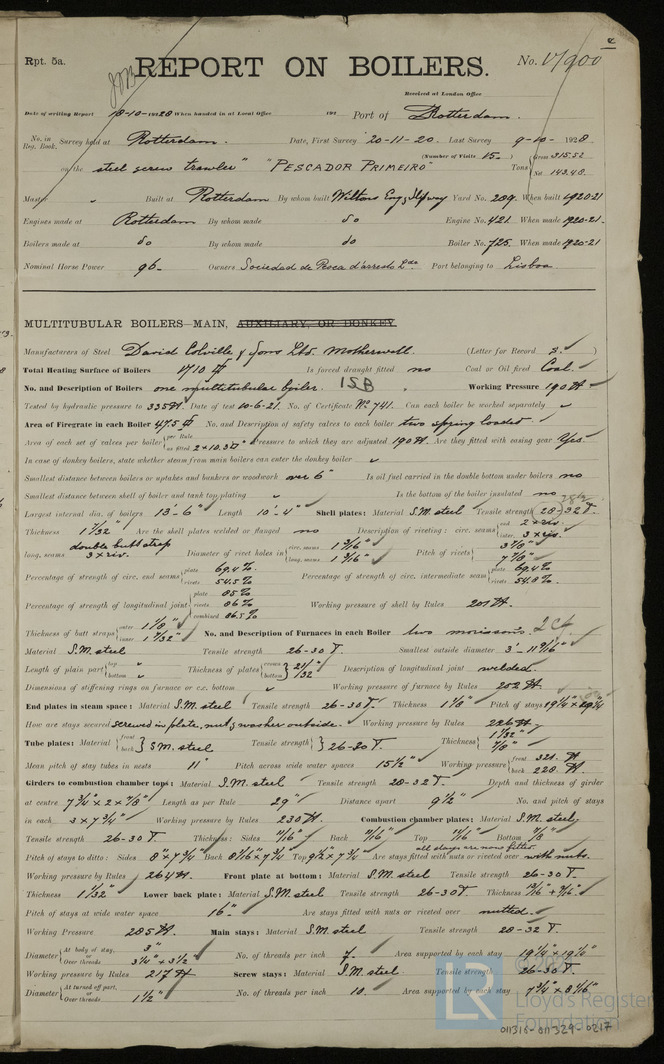 Rpt. 5a.
REPORT ON BOILERS.
No. 17900
Received at London Office
Date of writing Report 18-10-1928 When handed in at Local Office 192 Port of Rotterdam.
No. in Reg. Book. Survey held at Rotterdam. Date, First Survey 20-11-20. Last Survey 9-10- 1928
(Number of Visits 15.)
on the steel screw trawler "PESCADOR PRIMEIRO" Tons Gross 315.52 Net 143.48
Master " Built at Rotterdam By whom built Wiltons Eng. & Slipway Yard No. 209. When built 1920-21
Engines made at Rotterdam By whom made do Engine No. 421. When made 1920-21.
Boilers made at do By whom made do Boiler No. 725. When made 1920-21
Nominal Horse Power 96. Owners Sociedad de Pesca d'arresto Lda Port belonging to Lisboa
MULTITUBULAR BOILERS—MAIN, AUXILIARY, OR DONKEY
Manufacturers of Steel David Colville & Sons Ltd. Motherwell. (Letter for Record S. )
Total Heating Surface of Boilers 1710 Is forced draught fitted no Coal or Oil fired Coal.
No. and Description of Boilers one multitubular boiler. 1SB Working Pressure 190
Tested by hydraulic pressure to 335 Date of test 10-6-21. No. of Certificate No 741. Can each boiler be worked separately "
Area of Firegrate in each Boiler 47.5 No. and Description of safety valves to each boiler two spring loaded.
Area of each set of valves per boiler per Rule as fitted 2 x 10.3 Pressure to which they are adjusted 190 Are they fitted with easing gear Yes
In case of donkey boilers, state whether steam from main boilers can enter the donkey boiler "
Smallest distance between boilers or uptakes and bunkers or woodwork over 6" Is oil fuel carried in the double bottom under boilers no
Smallest distance between shell of boiler and tank top plating " Is the bottom of the boiler insulated no
Largest internal dia. of boilers 13'-6" Length 10'-4" Shell plates: Material S.M. steel Tensile strength 28-32 T.
Thickness 1 7/32" Are the shell plates welded or flanged no Description of riveting: circ. seams end 2 x riv. inter. 3 x riv.
long. seams double butt strap 3 x riv. Diameter of rivet holes in circ. seams 1 3/16" long. seams 1 3/16" Pitch of rivets 3 7/8" 7 7/8"
Percentage of strength of circ. end seams plate 69.4% rivets 54.5% Percentage of strength of circ. intermediate seam plate 69.4% rivets 54.0%
Percentage of strength of longitudinal joint plate 85% rivets 86% combined 86.5% Working pressure of shell by Rules 201
Thickness of butt straps outer 1 1/8" inner 1 1/32" No. and Description of Furnaces in each Boiler two morissons.
Material S.M. steel Tensile strength 26-30 T Smallest outside diameter 3'-11 9/16"
Length of plain part top " bottom " Thickness of plates crown bottom 21/32" Description of longitudinal joint welded.
Dimensions of stiffening rings on furnace or c.c. bottom " Working pressure of furnace by Rules 202
End plates in steam space: Material S.M. steel Tensile strength 26-30 T. Thickness 1 1/8" Pitch of stays 19 1/4 x 19 1/4
How are stays secured screwed in plate, nut & washer outside. Working pressure by Rules 226
Tube plates: Material front back S.M. steel Tensile strength 26-30 T. Thickness 1 1/32" 7/8"
Mean pitch of stay tubes in nests 11" Pitch across wide water spaces 15 1/2" Working pressure front 321. back 228
Girders to combustion chamber tops: Material S.M. steel Tensile strength 28-32 T. Depth and thickness of girder
at centre 7 3/4" x 2 x 7/8" Length as per Rule 29" Distance apart 9 1/2" No. and pitch of stays
in each 3 x 7 3/4" Working pressure by Rules 230 Combustion chamber plates: Material S.M. steel
Tensile strength 26-30 T. Thickness: Sides 11/16" Back 11/16" Top 11/16" Bottom 7/8"
all stays are now fitted
Pitch of stays to ditto: Sides 8" x 7 3/4 Back 8 1/16 x 7 3/4 Top 9 1/2" x 7 3/4 Are stays fitted with nuts or riveted over with nuts.
Working pressure by Rules 204 Front plate at bottom: Material S.M. steel Tensile strength 26-30 T.
Thickness 1 1/32" Lower back plate: Material S.M. steel Tensile strength 26-30 T. Thickness 13/16" + 9/16"
Pitch of stays at wide water space 16". Are stays fitted with nuts or riveted over nutted.
Working Pressure 205 Main stays: Material S.M. steel Tensile strength 28-32 T.
Diameter At body of stay, or Over threads 3" 3 1/4" + 3 1/2" No. of threads per inch 7. Area supported by each stay 19 1/4" x 19 1/4"
Working pressure by Rules 217 Screw stays: Material S.M. steel. Tensile strength 26-30 T.
Diameter At turned off part, or Over threads 1 1/2" No. of threads per inch 10. Area supported by each stay 7 3/4" x 8 1/16"
LR
Lloyd's Register
Foundation
011316-011329-0217